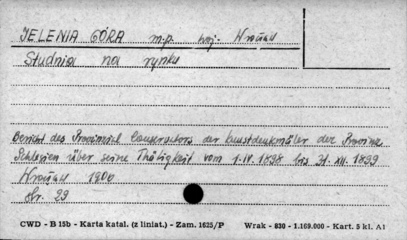 JELENIA GÓRA m.p. woj. Wrocław
Studnia na rynku
Bericht des Provinzial Conservators der Kunstdenkmäler der Provinz
Schlesien über seine Thätigkeit vom 1.IV.1898 bis 31.XII.1899
Wrocław 1900
Nr. 29
CWD - B 15b - Karta katal. (z liniat.) - Zam. 1625/P Wrak - 830 - 1.169.000 - Kart. 5 kl. A1